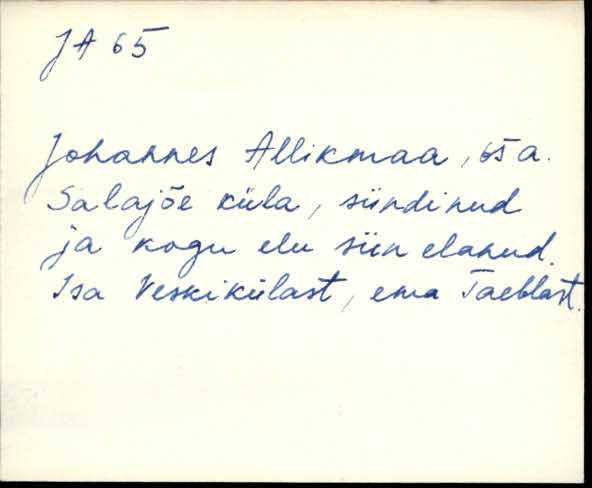 JA 65
Johannes Allikmaa, 65 a.
Salajõe küla, sündinud
ja kogu elu siin elanud.
Isa Veskikülast, ema Taeblast.